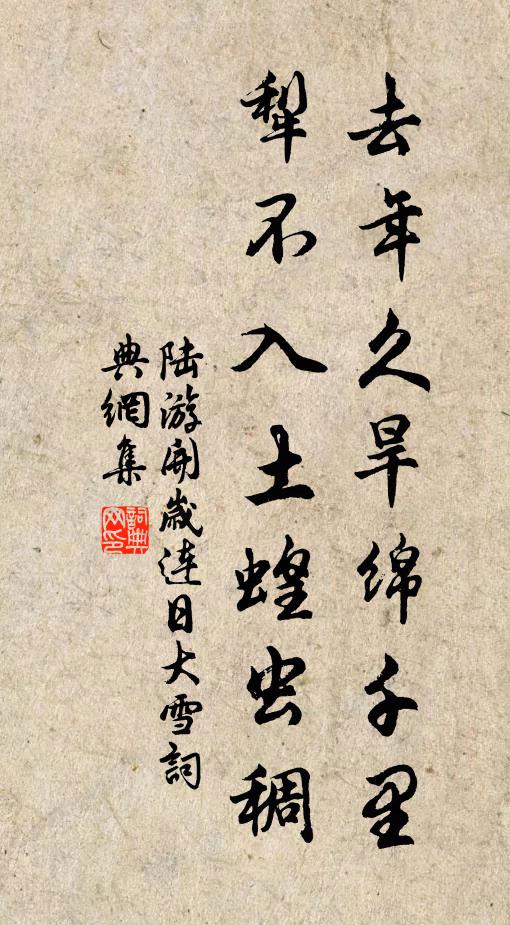 去年久旱绵千里
犁不入土蝗虫稠
陆游開歲连日大雪詞
典網集
詞典
网印